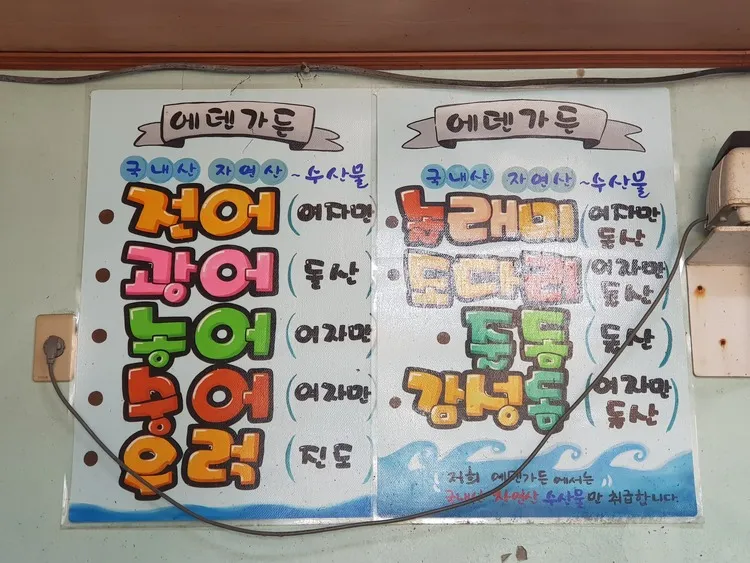 에덴가든
국내산 자연산 ~수산물
전어 (여자만)
광어 (돌산)
농어 (여자만)
숭어 (여자만)
우럭 (진도)
에덴가든
국내산 자연산 ~수산물
놀래미 (여자만 돌산)
도다리 (여자만 돌산)
돌돔 (돌산)
감성돔 (여자만 돌산)
저희 에덴가든에서는
국내산 자연산 수산물만 취급합니다.